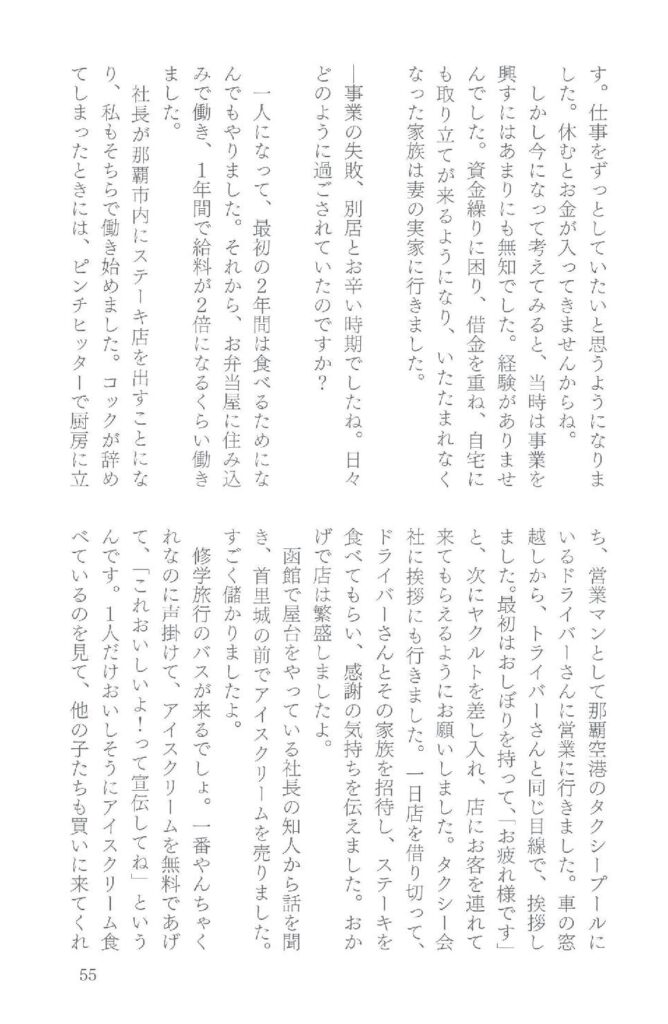 す。仕事をずっとしていたいと思うようになりま
した。休むとお金が入ってきませんからね。
しかし今になって考えてみると、当時は事業を
興すにはあまりにも無知でした。経験がありませ
んでした。資金繰りに困り、借金を重ね、自宅に
も取り立てが来るようになり、いたたまれなく
なった家族は妻の実家に行きました。
―事業の失敗、別居とお辛い時期でしたね。日々
どのように過ごされていたのですか？
一人になって、最初の２年間は食べるためにな
んでもやりました。それから、お弁当屋に住み込
みで働き、１年間で給料が２倍になるくらい働き
ました。
社長が那覇市内にステーキ店を出すことにな
り、私もそちらで働き始めました。コックが辞め
てしまったときには、ピンチヒッターで厨房に立
ち、営業マンとして那覇空港のタクシープールに
いるドライバーさんに営業に行きました。車の窓
越しから、トライバーさんと同じ目線で、挨拶し
ました。最初はおしぼりを持って、「お疲れ様です」
と、次にヤクルトを差し入れ、店にお客を連れて
来てもらえるようにお願いしました。タクシー会
社に挨拶にも行きました。一日店を借り切って、
ドライバーさんとその家族を招待し、ステーキを
食べてもらい、感謝の気持ちを伝えました。おか
げで店は繁盛しましたよ。
函館で屋台をやっている社長の知人から話を聞
き、首里城の前でアイスクリームを売りました。
すごく儲かりましたよ。
修学旅行のバスが来るでしょ。一番やんちゃく
れなのに声掛けて、アイスクリームを無料であげ
て、「これおいしいよ！って宣伝してね」という
んです。１人だけおいしそうにアイスクリーム食
べているのを見て、他の子たちも買いに来てくれ
55